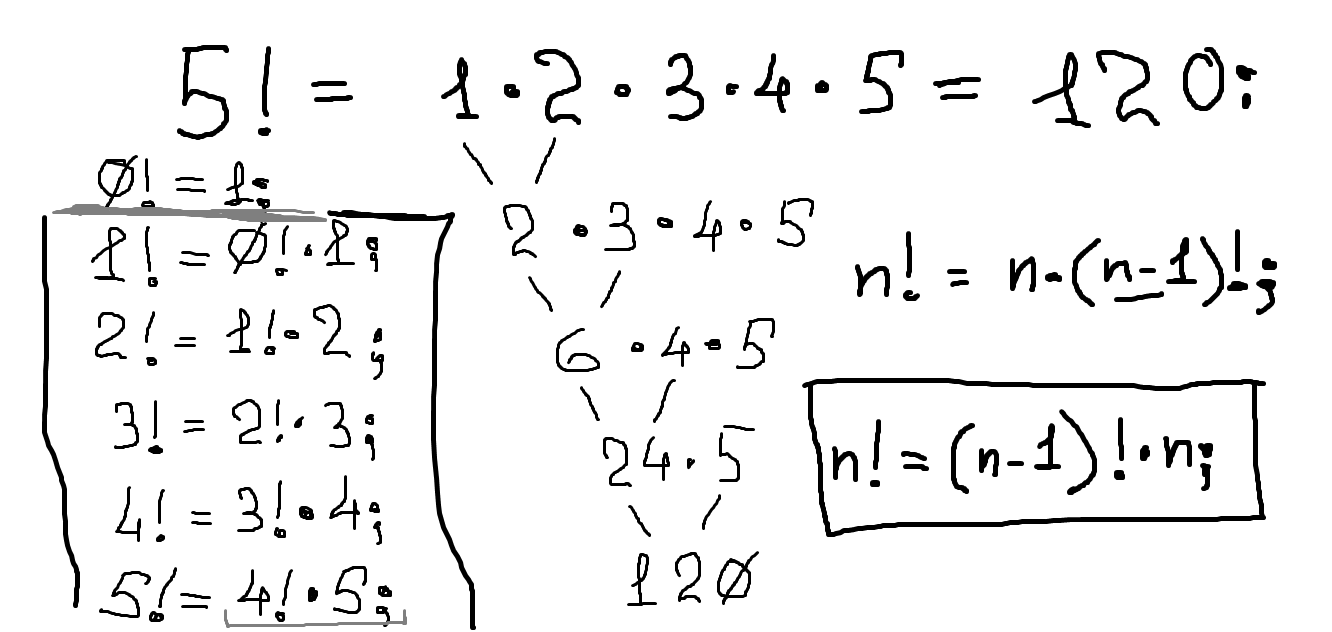 5! = 1·2·3·4·5 = 120;
0! = 1;
1! = 0!·1;
2! = 1!·2;
3! = 2!·3;
4! = 3!·4;
5! = 4!·5;
2·3·4·5
6·4·5
24·5
120
n! = n·(n-1)!;
n! = (n-1)!·n;